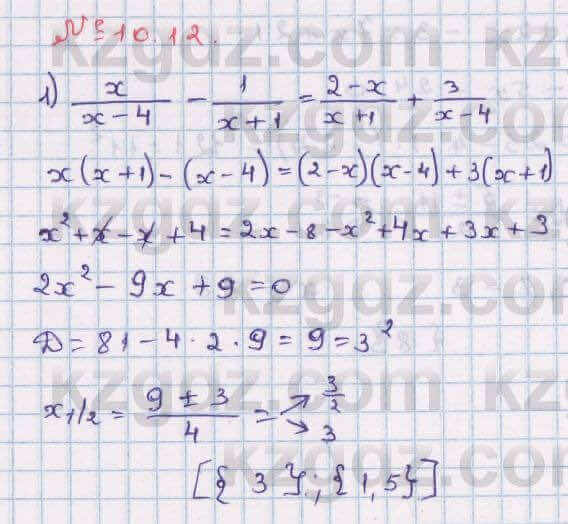 № 10.12.
1) x/(x-4) - 1/(x+1) = (2-x)/(x+1) + 3/(x-4)
x(x+1)-(x-4)=(2-x)(x-4)+3(x+1)
x²+x-x+4=2x-8-x²+4x+3x+3
2x²-9x+9=0
D=81-4·2·9=9=3²
x1/2 = (9±3)/4 = 3/2
3
[{3};{1,5}]
kzgdz.com